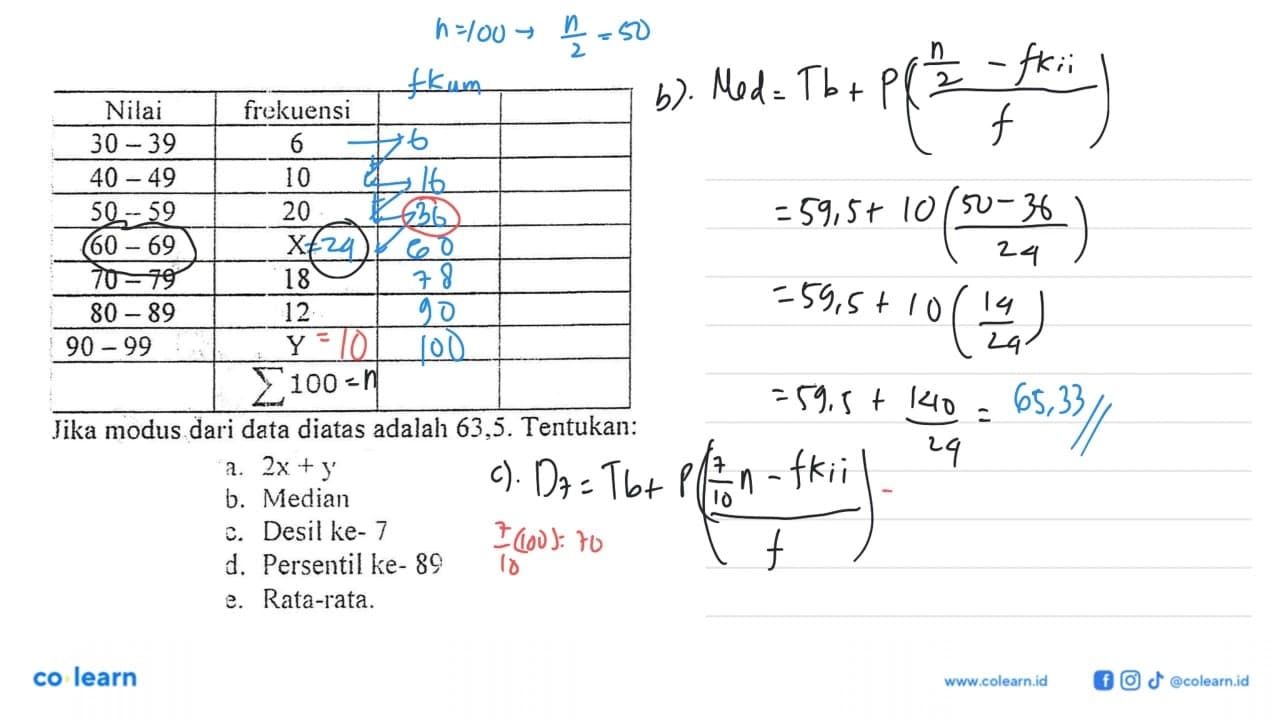 n=100 → n/2 = 50
fkum
Nilai frekuensi
30 – 39 6 → 6
40 – 49 10 → 16
50 – 59 20 → 36
60 – 69 X=24 60
70 – 79 18 78
80 – 89 12 90
90 – 99 Y = 10 100
∑ 100 = n
Jika modus dari data diatas adalah 63,5. Tentukan:
a. 2x + y
b. Median
c. Desil ke- 7
d. Persentil ke- 89
e. Rata-rata.
b). Med = Tb + P((n/2 - fkii)/f)
= 59,5 + 10((50-36)/24)
= 59,5 + 10(14/24)
= 59,5 + 140/24 = 65,33//
c). D7 = Tb + P((7/10 n - fkii)/f) =
7/10 (100) = 70
co learn
www.colearn.id
@colearn.id